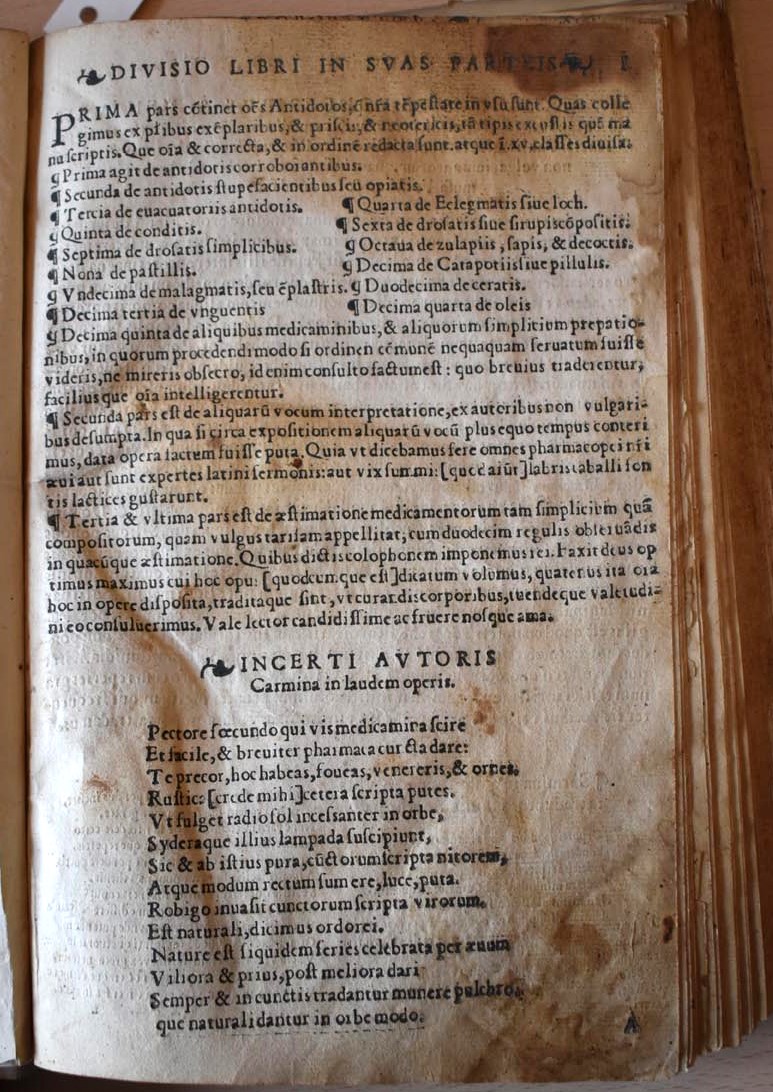 DIVISIO LIBRI IN SVAS PARTEIS
PRIMA pars cōtinet oēs Antidotos, q̄ nr̄a tēpestate in vsu sunt. Quas colle
gimus ex pl'ibus exēplaribus, & priscis, & neotericis, tā tipis excussis quā ma
nu scriptis. Que oīa & correcta, & in ordinē redacta sunt. atque ī. xv. classes diuisa:
¶ Prima agit de antidotis corroborantibus.
¶ Secunda de antidotis stupefacientibus seu opiatis.
¶ Tercia de euacuatoriis antidotis. ¶ Quarta de Eclegmatis siue loch.
¶ Quinta de conditis. ¶ Sexta de drosatis siue sirupis cōpositis:
¶ Septima de drosatis simplicibus. ¶ Octaua de zulapiis, sapis, & decoctis.
¶ Nona de pastillis. ¶ Decima de Catapotiis siue pillulis.
¶ Vndecima de malagmatis, seu ēplastris. ¶ Duodecima de ceratis.
¶ Decima tertia de vnguentis ¶ Decima quarta de oleis
¶ Decima quinta de aliquibus medicaminibus, & aliquorum simplicium prepatio-
nibus, in quorum procedendi modo si ordinem cōmunē nequaquam seruatum fuisse
videris, ne mireris obsecro, id enim consulto factum est: quo breuius traderentur,
faciliusque oīa intelligerentur.
¶ Secunda pars est de aliquarū vocum interpretatione, ex autoribus non vulgari-
bus desumpta. In qua si circa expositionem aliquarū vocū plus equo tempus conteri
mus, data opera factum fuisse puta. Quia vt dicebamus fere omnes pharmacopei nr̄i
æui aut sunt expertes latini sermonis: aut vix summi: [quod aiūt] labris caballi fon
tis lactices gustarunt.
¶ Tertia & vltima pars est de æstimatione medicamentorum tam simplicium quā
compositorum, quam vulgus tarifam appellitat, cum duodecim regulis obseruādis
in quacūque æstimatione. Quibus dictis colophonem imponemus rei. Faxit deus op
timus maximus cui hoc opus [quodcumque est] dicatum volumus, quatenus ita oīa
hoc in opere disposita, traditaque sint, vt curandis corporibus, tuendeque valetudi-
ni eo consuluerimus. Vale lector candidissime ac fruere nosque ama.
INCERTI AVTORIS
Carmina in laudem operis.
Pectore fœcundo qui vis medicamina scire
Et facile, & breuiter pharmaca cuncta dare:
Te precor, hoc habeas, foueas, venereris, & ornes.
Rustica [crede mihi] cetera scripta putes.
Vt fulget radio sol incessanter in orbe,
Syderaque illius lampada suscipiunt,
Sic & ab istius pura, cūctorum scripta nitorem,
Atque modum rectum sumere, luce, puta.
Robigo inuasit cunctorum scripta virorum.
Est naturali, dicimus ordo rei.
Nature est siquidem series celebrata per æuum
Viliora & prius, post meliora dari
Semper & in cunctis tradantur munere pulchro,
que naturali dantur in orbe modo.
A